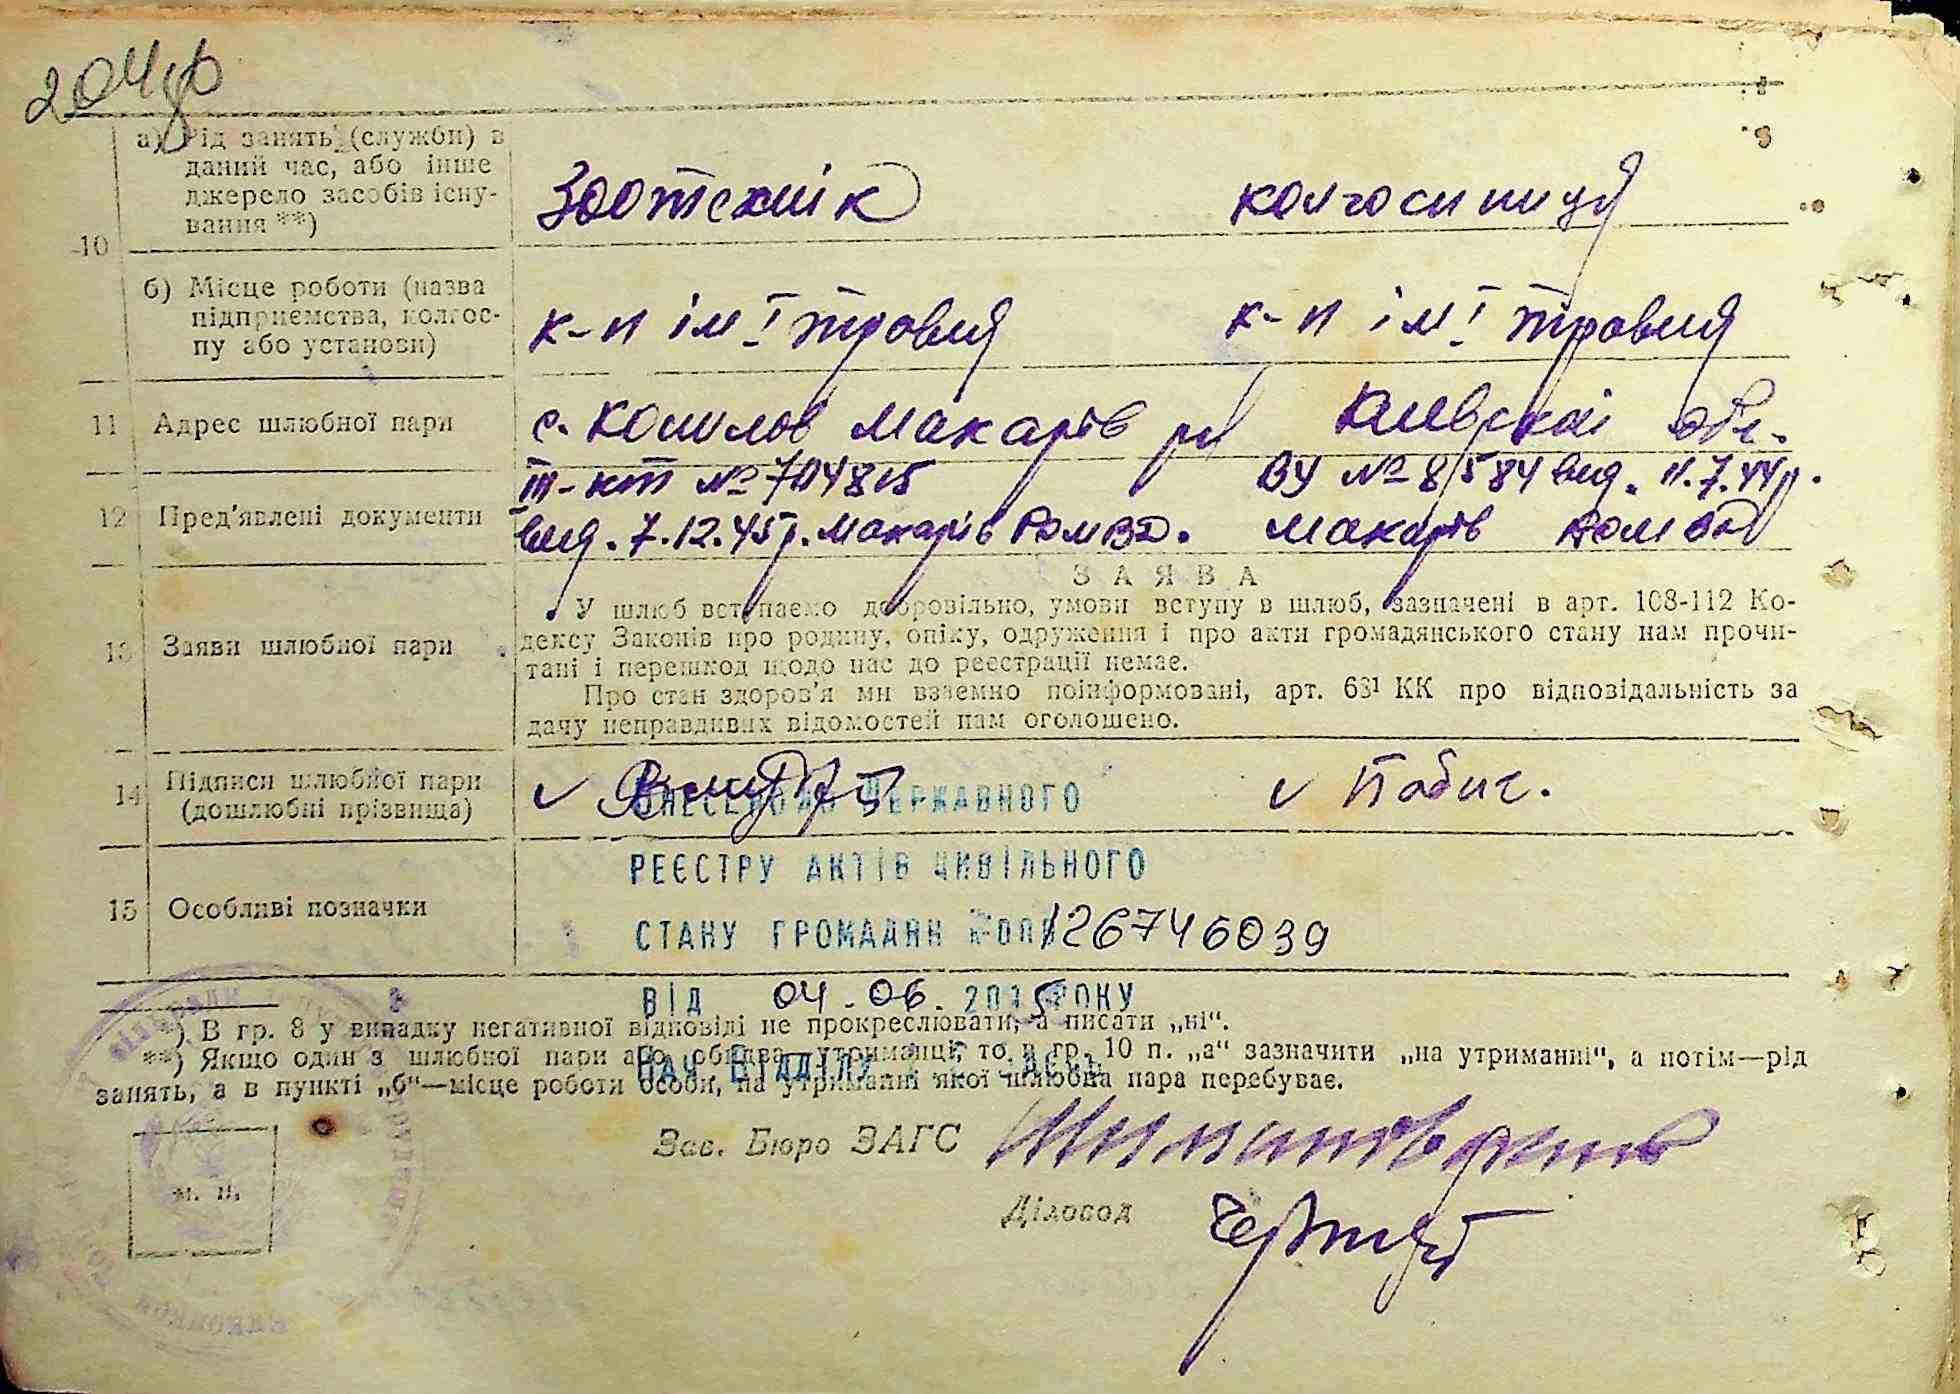 204
а) Рід занять (служби) в
даний час, або інше
джерело засобів існу-
вання **)
Зоотехнік
колгоспниця
10
б) Місце роботи (назва
підприємства, колгос-
пу або установи)
к-п ім 1 травня
к-п ім 1 травня
11 Адрес шлюбної пари
с. Копилов Макарів рн Київської обл.
12 Пред'явлені документи
№ 704815
ВУ № 8584 вид. 11.7.44р.
вид. 7.12.45р. Макарів РОМВД.
Макарів РОМВД
13 Заяви шлюбної пари
ЗАЯВА
У шлюб вступаємо добровільно, умови вступу в шлюб, зазначені в арт. 108-112 Ко-
дексу Законів про родину, опіку, одруження і про акти громадянського стану нам прочи-
тані і перешкод щодо нас до реєстрації немає.
Про стан здоров'я ми взаємно поінформовані, арт. 68¹ КК про відповідальність за
дачу неправдивих відомостей нам оголошено.
14 Підписи шлюбної пари
(дошлюбні прізвища)
ВНЕСЕНО ДО ДЕРЖАВНОГО
РЕЄСТРУ АКТІВ ЦИВІЛЬНОГО
15 Особливі позначки
СТАНУ ГРОМАДЯН 126746039
ВІД 04.06.2015 РОКУ
*) В гр. 8 у випадку негативної відповіді не прокреслювати, а писати „ні".
**) Якщо один з шлюбної пари або обидва утриманці, то в гр. 10 п. „а" зазначити „на утриманні", а потім—рід
НАЧ ВІДДІЛУ
занять, а в пункті „б"—місце роботи особи, на утриманні якої шлюбна пара перебуває.
Зав. Бюро ЗАГС
м. п.
Діловод